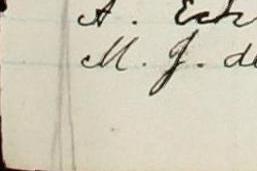 A. Ech
M. J. de